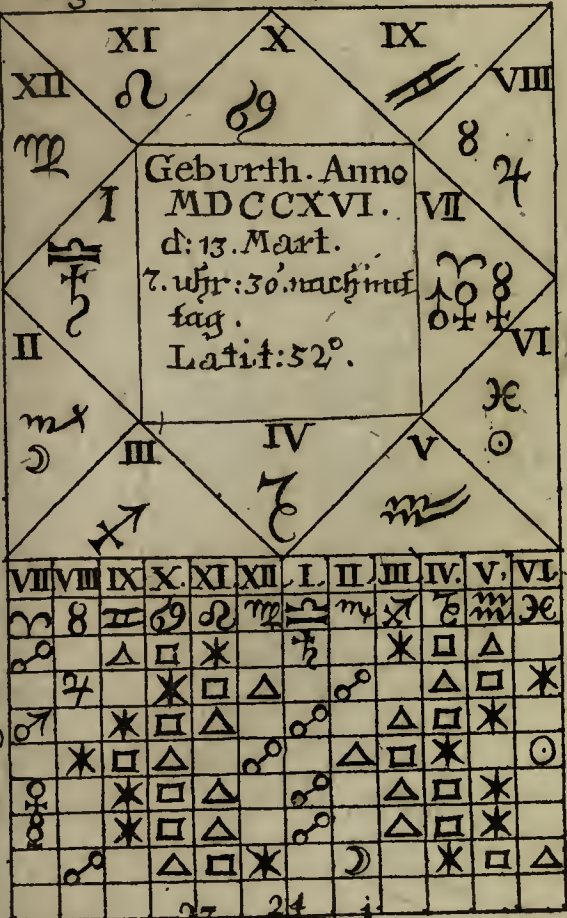 XI X IX
XII ♌ ♋ ♊ VIII
♍ ♉ ♃
I VII
♎ ♄ ♈ ♂ ♀ ☿
Geburth. Anno
MDCCXVI.
d: 13. Mart.
7. uhr: 30. nachmit
tag.
Latit: 52°.
II VI
♏ ☽ ♓ ☉
III IV V
♐ ♑ ♒
VII VIII IX X. XI. XII I. II III IV. V. VI.
♈ ♉ ♊ ♋ ♌ ♍ ♎ ♏ ♐ ♑ ♒ ♓
☍ △ □ ✶ ♄ ✶ □ △
♃ ✶ □ △ ☍ △ □ ✶
♂ ✶ □ △ ☍ △ □ ✶
✶ □ △ ☍ △ □ ✶ ☉
♀ ✶ □ △ ☍ △ □ ✶
☿ ✶ □ △ ☍ △ □ ✶
☍ △ □ ✶ ☽ ✶ □ △